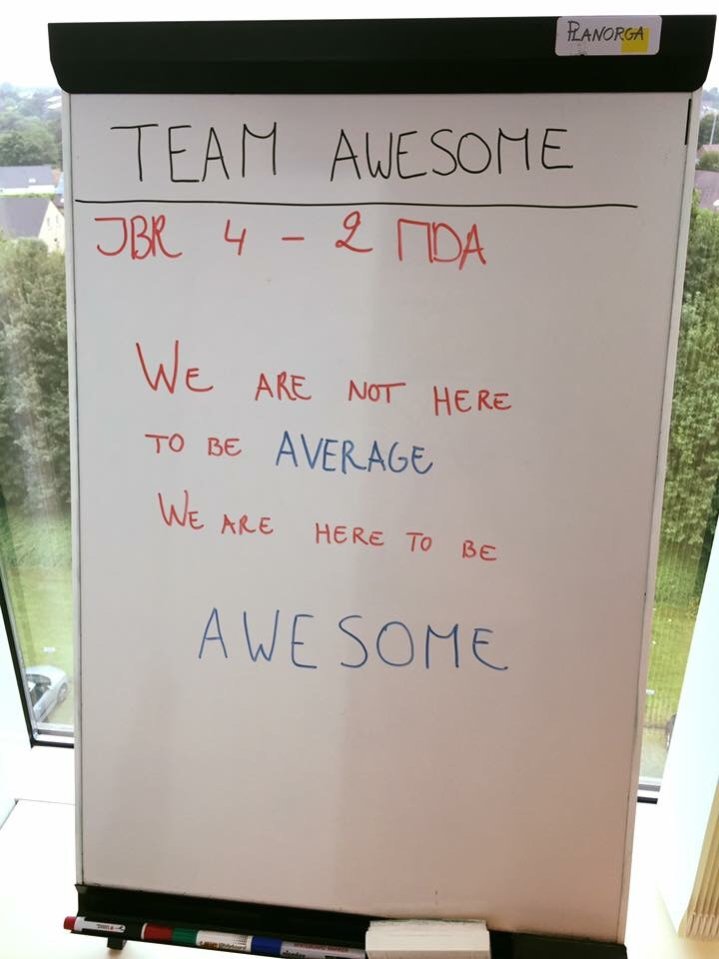 PLANORGA
TEAM AWESOME
JBR 4 - 2 MDA
WE ARE NOT HERE
TO BE AVERAGE
WE ARE HERE TO BE
AWESOME